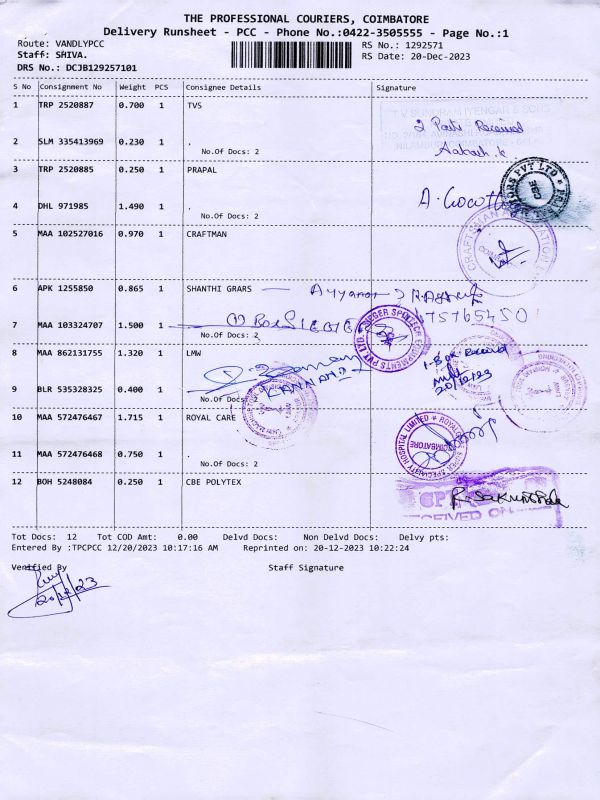 THE PROFESSIONAL COURIERS, COIMBATORE
Delivery Runsheet - PCC - Phone No.:0422-3505555 - Page No.:1
Route: VANDLYPCC
Staff: SHIVA.
DRS No.: DCJB129257101
RS No.: 1292571
RS Date: 20-Dec-2023
S No Consignment No Weight PCS Consignee Details Signature
1 TRP 2520887 0.700 1 TVS
2 SLM 335413969 0.230 1 .
No.Of Docs: 2
Received
Aakash.k
3 TRP 2520885 0.250 1 PRAPAL
4 DHL 971985 1.490 1 .
No.Of Docs: 2
5 MAA 102527016 0.970 1 CRAFTMAN
6 APK 1255850 0.865 1 SHANTHI GRARS
7 MAA 103324707 1.500 1
No.Of Docs: 2
8 MAA 862131755 1.320 1 LMW
1-Box Received
20/12/23
9 BLR 535328325 0.400 1 .
No.Of Docs: 2
10 MAA 572476467 1.715 1 ROYAL CARE
COIMBATORE
11 MAA 572476468 0.750 1 .
No.Of Docs: 2
12 BOH 5248084 0.250 1 CBE POLYTEX
Tot Docs: 12 Tot COD Amt: 0.00 Delvd Docs: Non Delvd Docs: Delvy pts:
Entered By :TPCPCC 12/20/2023 10:17:16 AM Reprinted on: 20-12-2023 10:22:24
Verified By Staff Signature
20/12/23